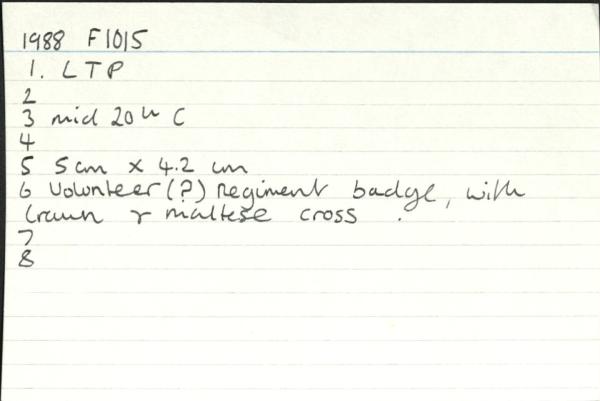 1988 F1015
1. LTP
2
3 mid 20th C
4
5 5cm x 4.2 cm
6 Volunteer(?) Regiment badge, with
Crown & maltese cross .
7
8